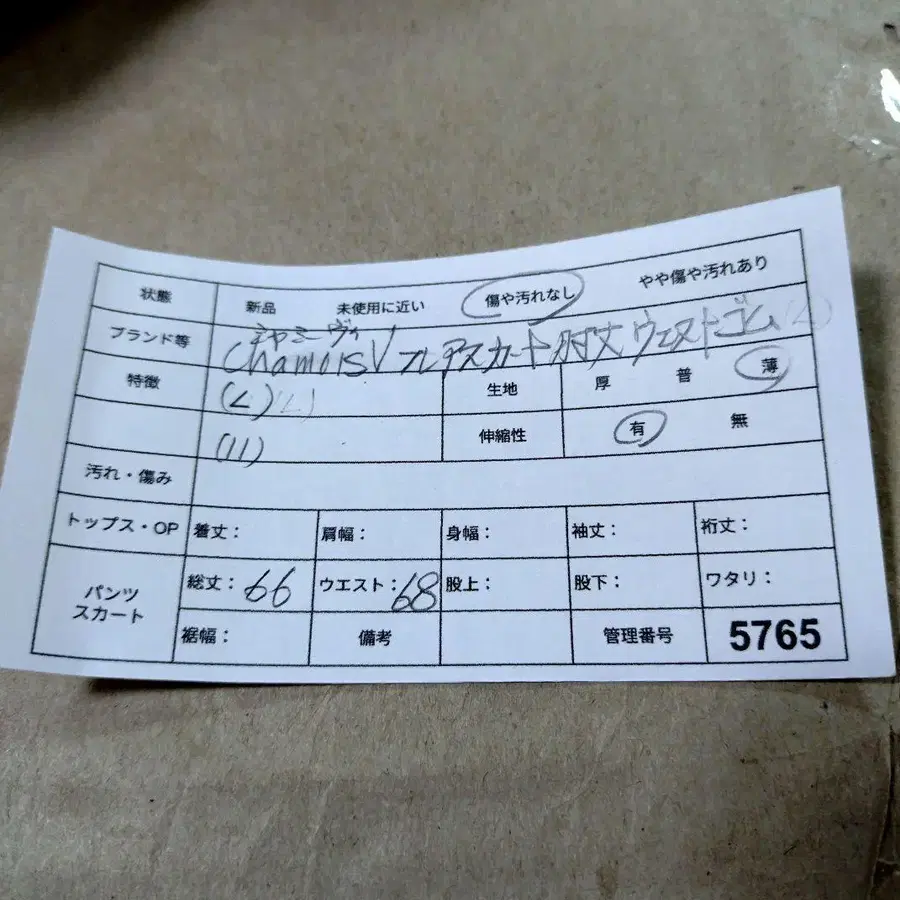 状態 新品 未使用に近い 傷や汚れなし やや傷や汚れあり
シャミーヴィ
ブランド等 ChamoisV フレアスカート ウエストゴム
特徴 生地 厚 普 薄
(11) 伸縮性 有 無
汚れ・傷み
トップス・OP 着丈： 肩幅： 身幅： 袖丈： 裄丈：
パンツ スカート 総丈：66 ウエスト：68 股上： 股下： ワタリ：
裾幅： 備考 管理番号 5765